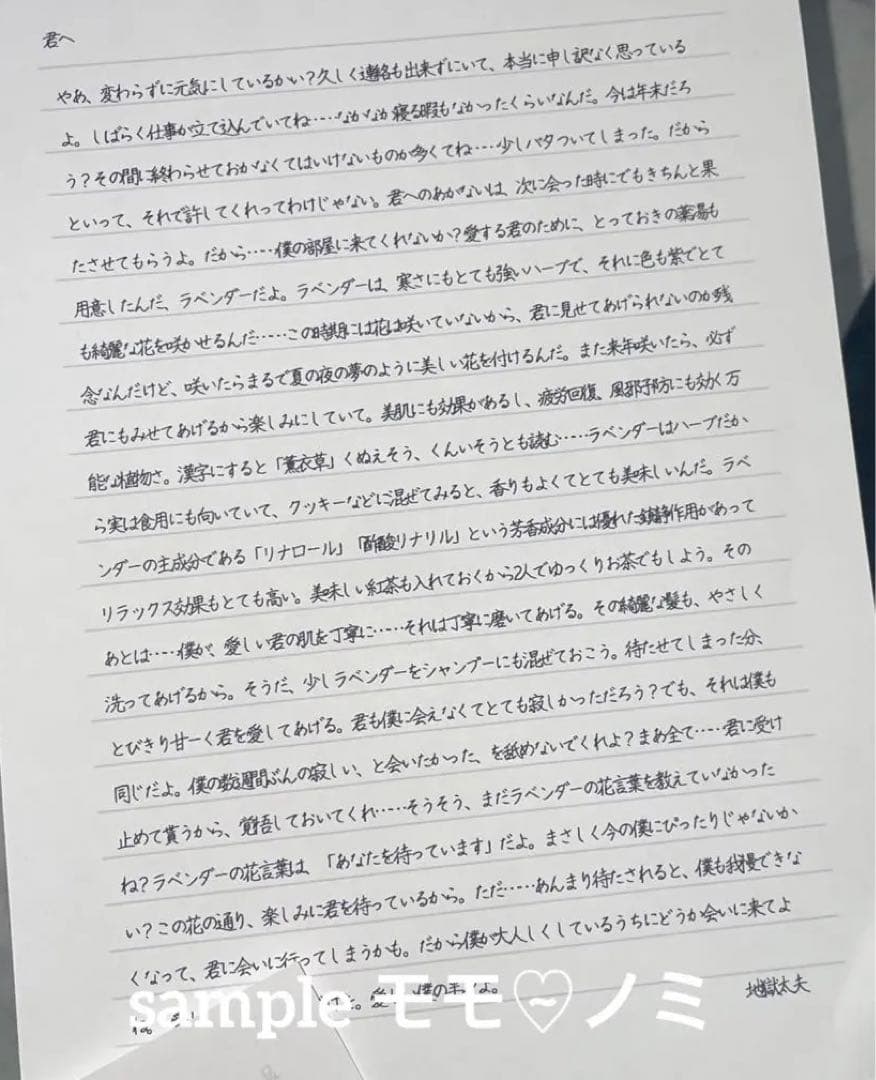 君へ
やあ、変わらずに元気にしているかい？久しく連絡も出来ずにいて、本当に申し訳なく思っている
よ。しばらく仕事が立て込んでいてね……なかなか寝る暇もなかったくらいなんだ。今は年末だろ
う？その間に終わらせておかなくてはいけないものが多くてね……少しバタついてしまった。だから
といって、それで許してくれってわけじゃない。君へのあがないは、次に会った時にでもきちんと果
たさせてもらうよ。だから……僕の部屋に来てくれないか？愛する君のために、とっておきの薬湯も
用意したんだ、ラベンダーだよ。ラベンダーは、寒さにもとても強いハーブで、それに色も紫でとて
も綺麗な花を咲かせるんだ……この時期には花は咲いていないから、君に見せてあげられないのが残
念なんだけど、咲いたらまるで夏の夜の夢のように美しい花を付けるんだ。また来年咲いたら、必ず
君にもみせてあげるから楽しみにしていて。美肌にも効果があるし、疲労回復、風邪予防にも効く万
能な植物さ。漢字にすると「薫衣草」くぬえそう、くんいそうとも読む……ラベンダーはハーブだか
ら実は食用にも向いていて、クッキーなどに混ぜてみると、香りもよくてとても美味しいんだ。ラベ
ンダーの主成分である「リナロール」「酢酸リナリル」という芳香成分には優れた鎮静作用があって
リラックス効果もとても高い。美味しい紅茶も入れておくから2人でゆっくりお茶でもしよう。その
あとは……僕が、愛しい君の肌を丁寧に……それは丁寧に磨いてあげる。その綺麗な髪も、やさしく
洗ってあげるから。そうだ、少しラベンダーをシャンプーにも混ぜておこう。待たせてしまった分、
とびきり甘ーく君を愛してあげる。君も僕に会えなくてとても寂しかっただろう？でも、それは僕も
同じだよ。僕の数週間ぶんの寂しい、と会いたかった、を舐めないでくれよ？まあ全て……君に受け
止めて貰うから、覚悟しておいてくれ……そうそう、まだラベンダーの花言葉を教えていなかった
ね？ラベンダーの花言葉は、「あなたを待っています」だよ。まさしく今の僕にぴったりじゃないか
い？この花の通り、楽しみに君を待っているから。ただ……あんまり待たされると、僕も我慢できな
くなって、君に会いに行ってしまうかも。だから僕が大人しくしているうちにどうか会いに来てよ
ね。 愛しい僕の よ。
地獄太夫
sample モモ♡ノミ